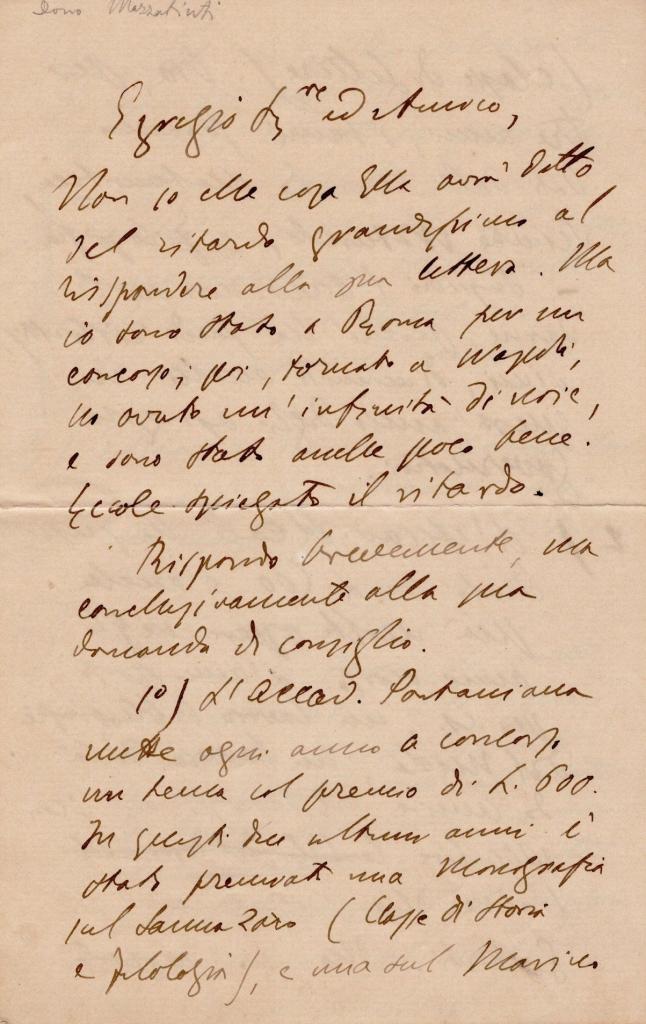 Dono Mazzatinti
Egregio Sig.re ed Amico,
Non so che cosa Ella avrà detto
del ritardo grandissimo al
rispondere alla sua lettera. Ma
io sono stato a Roma per un
concorso; poi, tornato a Napoli,
ho avuto un'infinità di noie,
e sono stato anche poco bene.
Eccole spiegato il ritardo.
Rispondo brevemente, ma
conclusivamente alla sua
domanda di consiglio.
1º) L'Accad. Pontaniana
mette ogni anno a concorso
un tema col premio di L. 600.
In questi due ultimi anni è
stata premiata una Monografia
sul Sannazaro (Classe di Storia
e filologia), e una sul Marino